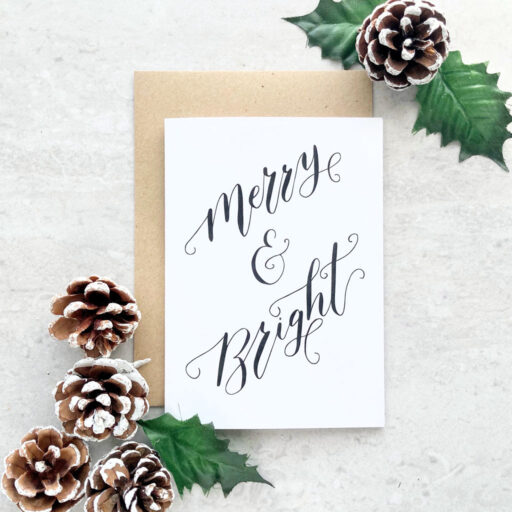 Merry
&
Bright